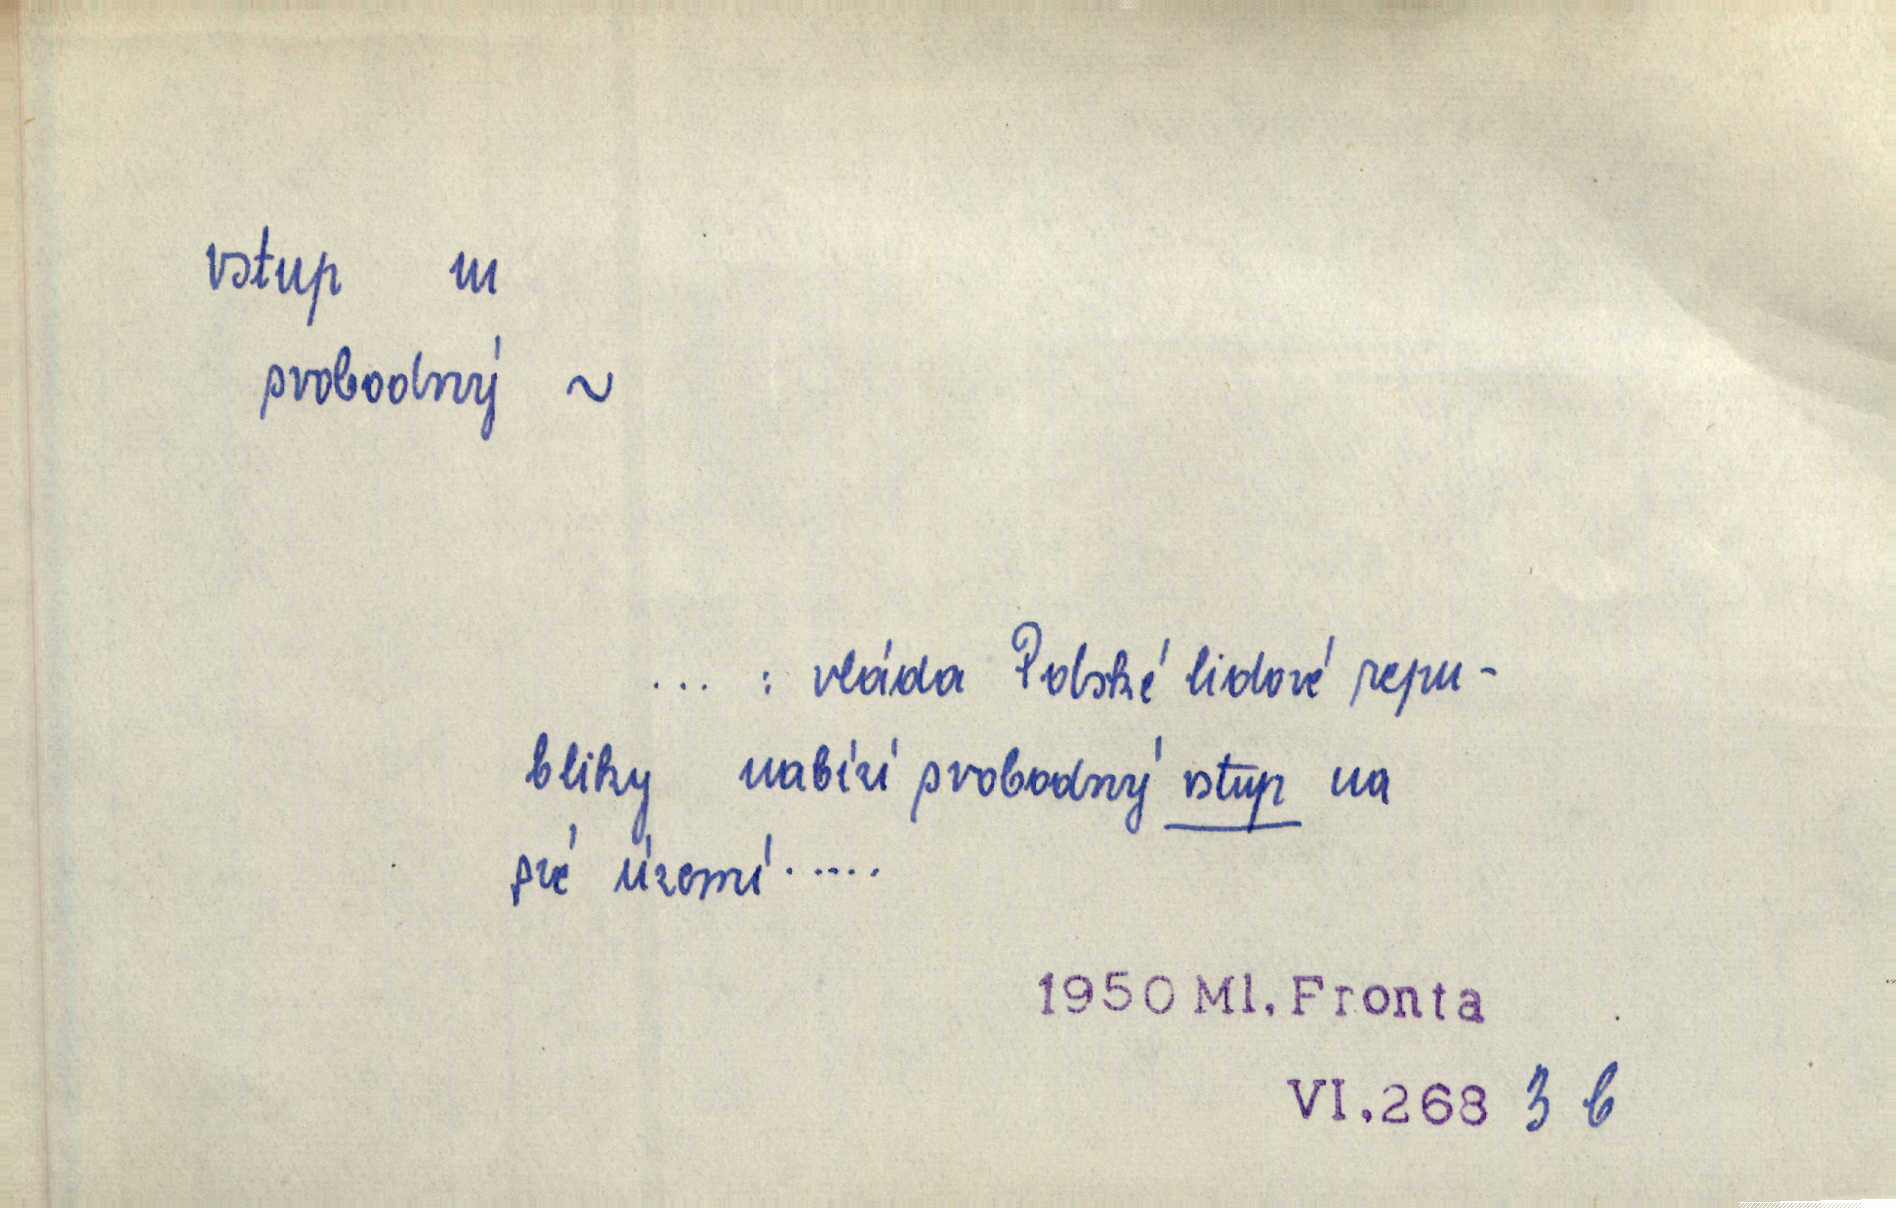 vstup m
svobodný ~
... : vláda Polské lidové repu-
bliky nabízí svobodný vstup na
své území.....
1950 Ml. Fronta
VI.268 3 b